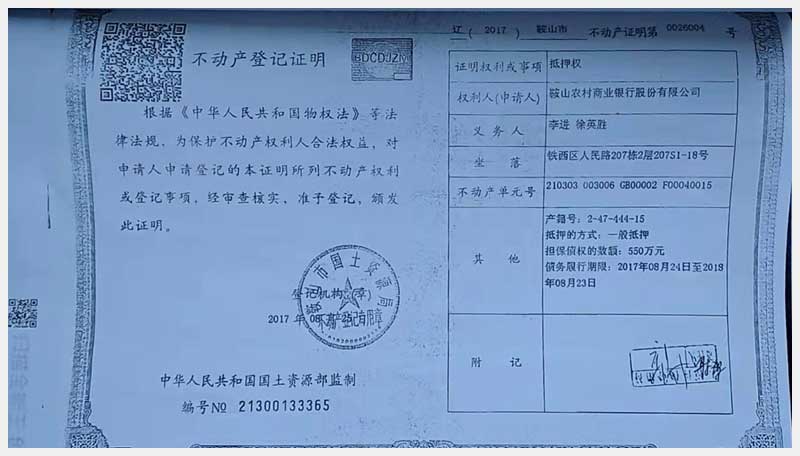 不动产登记证明
BDCDJZM
根据《中华人民共和国物权法》等法
律法规，为保护不动产权利人合法权益，对
申请人申请登记的本证明所列不动产权利
或登记事项，经审查核实，准予登记，颁发
此证明。
鞍山市国土资源局
登记机构（章）
2017 年 08
不动产登记专用章
中华人民共和国国土资源部监制
编号№ 21300133365
辽（2017）鞍山市 不动产证明第 0026004 号
证明权利或事项 抵押权
权利人(申请人) 鞍山农村商业银行股份有限公司
义务人 李进 徐英胜
坐落 铁西区人民路207栋2层207S1-18号
不动产单元号 210303 003006 GB00002 F00040015
其他
产籍号：2-47-444-15
抵押的方式：一般抵押
担保债权的数额：550万元
债务履行期限：2017年08月24日至2018
年08月23日
附记